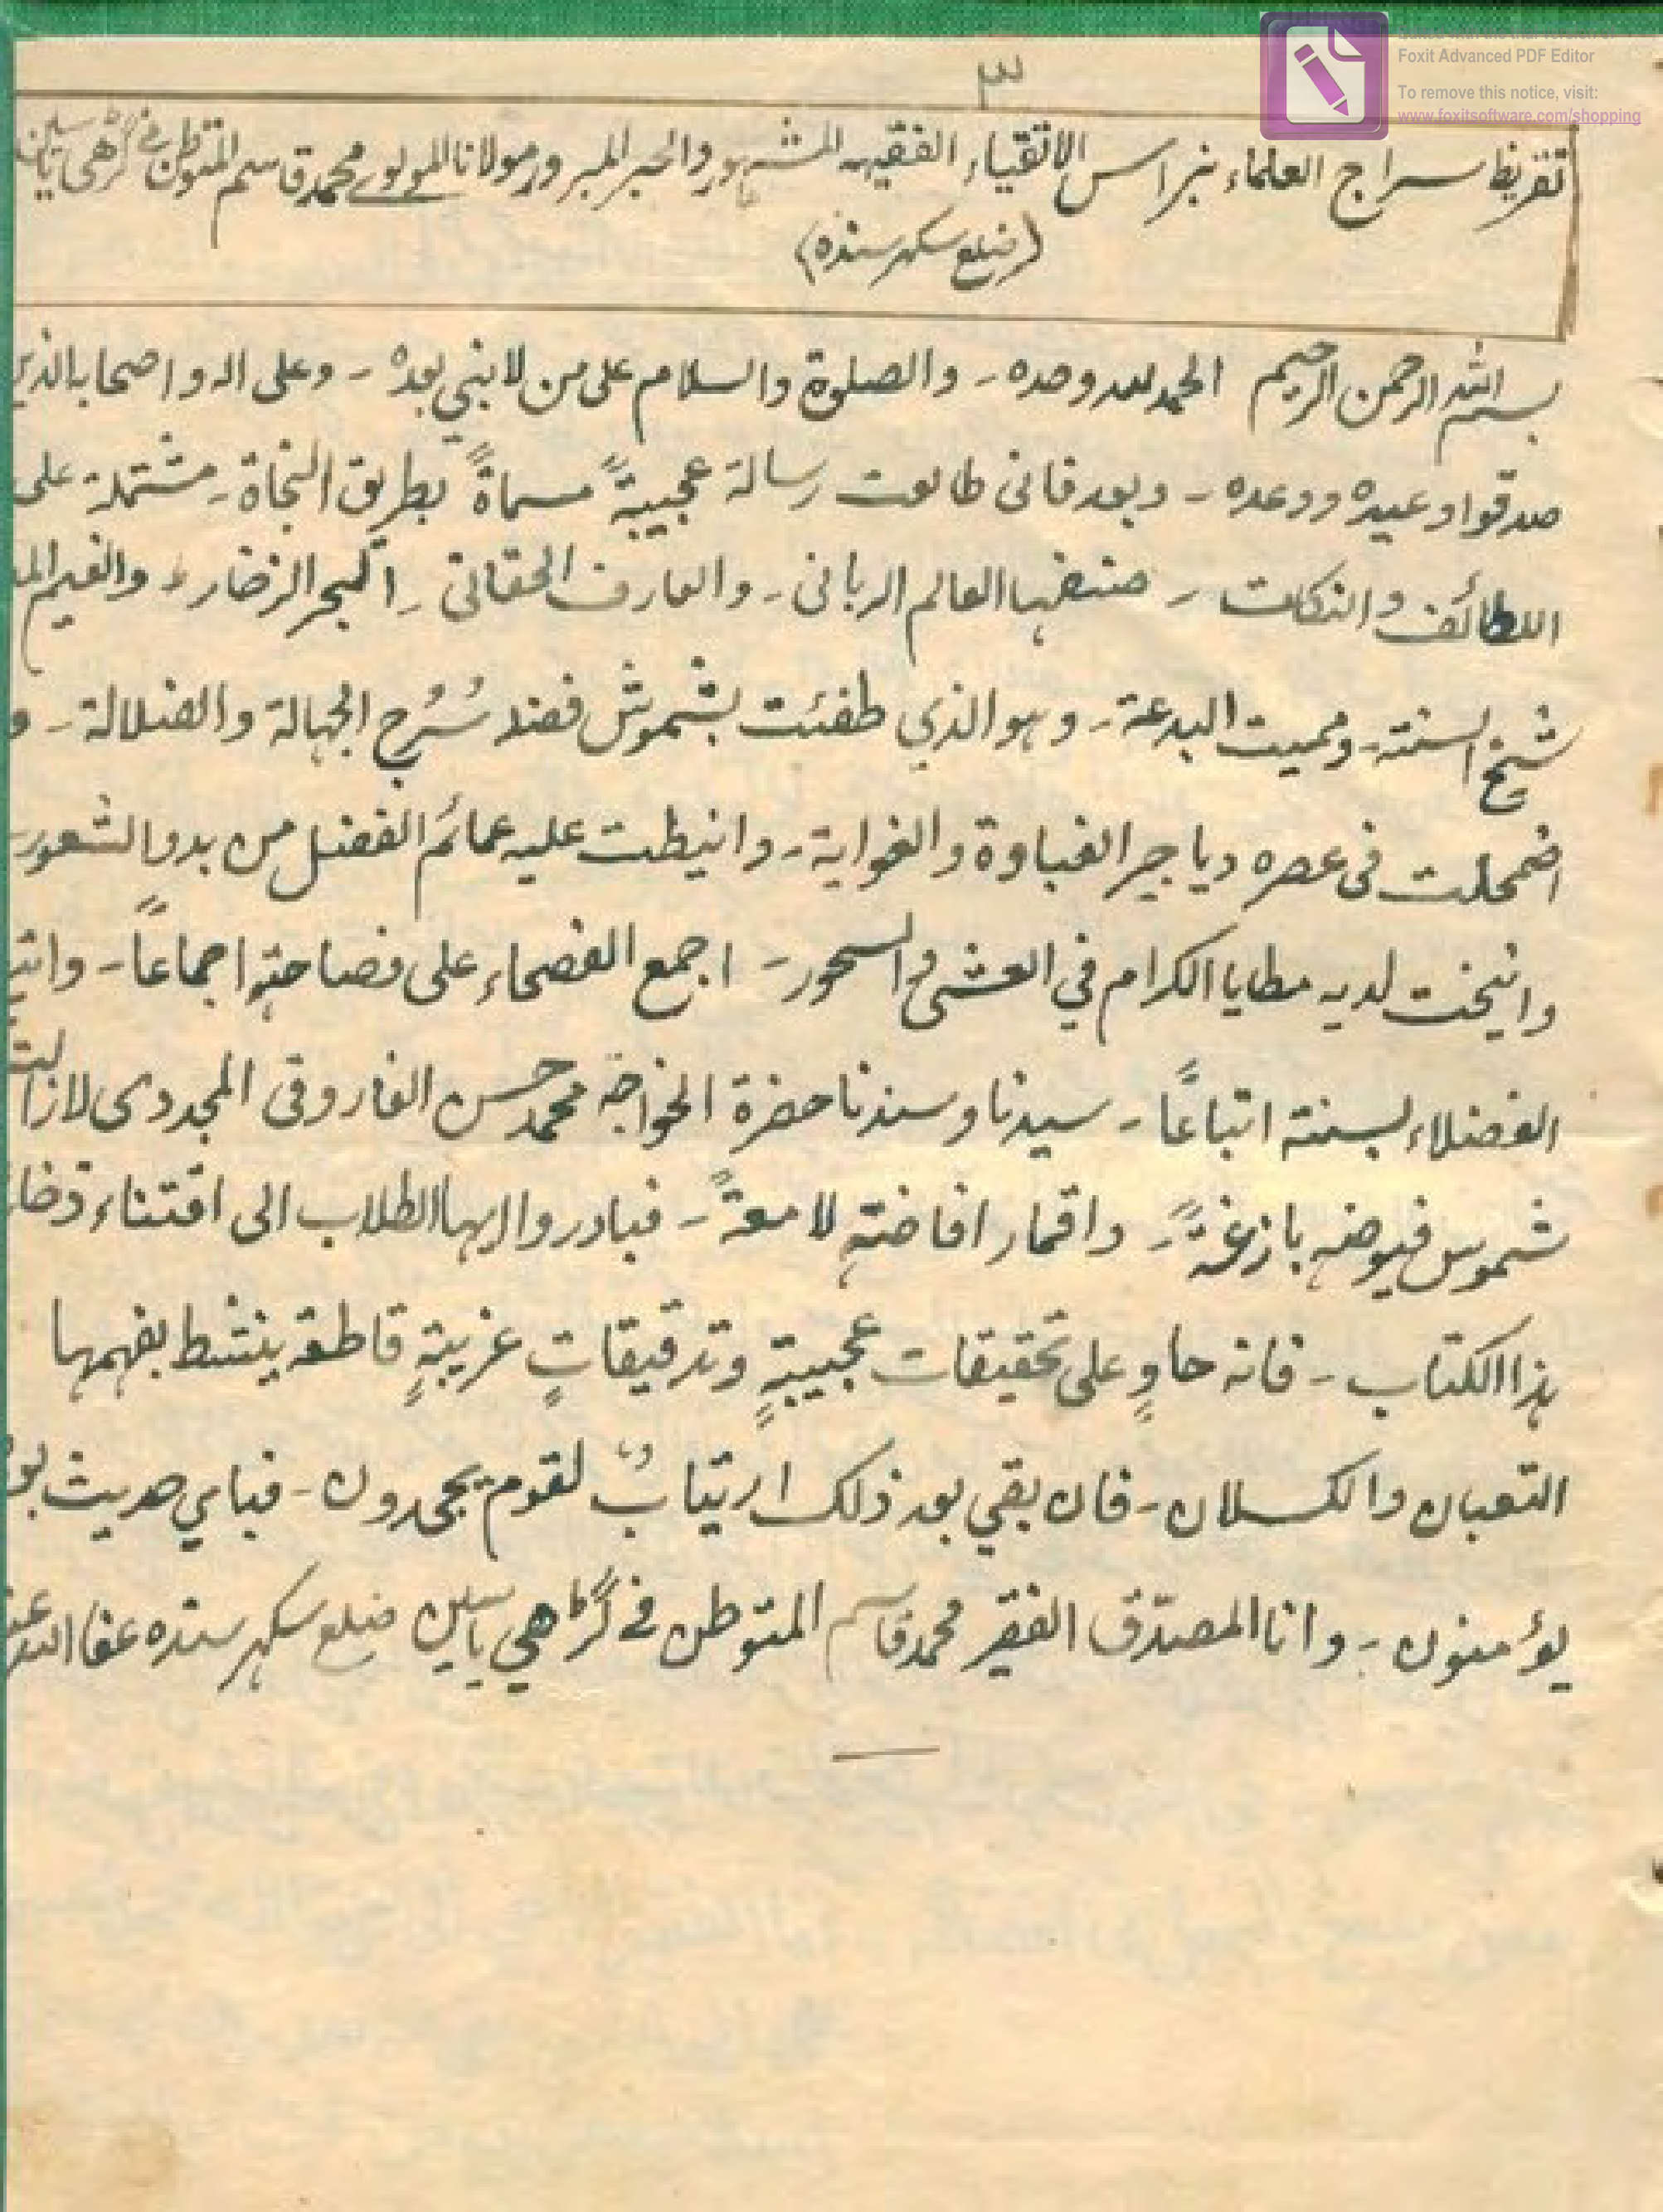 ٣
Foxit Advanced PDF Editor
To remove this notice, visit:
www.foxitsoftware.com/shopping
تقریظ سراج العلماء نبراس الاتقیاء الفقیہ المشہور والحبر المبرور مولانا المولوے محمد قاسم المتوطن فے گڑھی یاسین
(ضلع سکہر سندہ)
بسم اللہ الرحمن الرحیم الحمد للہ وحدہ - والصلوۃ والسلام علی من لا نبی بعدہ - وعلی الہ واصحابہ الذین
صدقوا وعیدہ ووعدہ - وبعد فانی طالعت رسالة عجیبةً مسماةً بطریق النجاة - مشتملة علی
اللطائف والنکات - صنفہا العالم الربانی - والعارف الحقانی - البحر الزخار - والغیم
شیخ السنتہ - وممیت البدعة - وہو الذی طفئت بشموش فضلہ سُرُج الجہالة والضلالة - و
اضمحلت فی عصرہ دیاجیر الغباوة والغوایة - وانیطت علیہ عمائم الفضل من بدو الشعور -
وانیخت لدیہ مطایا الکرام فی العشی والسحور - اجمع الفصحاء علی فصاحتہ اجماعاً -
الفضلاء لسنتہ اتباعاً - سیدنا وسندنا حضرة الخواجہ محمد حسن الفاروقی المجددی لازالت
شموس فیوضہ بازغةً - واقمار افاضتہ لامعةً - فبادروا ایہا الطلاب الی اقتناء
ہذا الکتاب - فانہ حاوٍ علی تحقیقات عجیبةٍ وتدقیقاتٍ غریبةٍ قاطعة ینشط بفہمہا
التعبان والکسلان - فان بقی بعد ذلک ارتیابٌ لقوم یجحدون - فبای حدیث
یؤمنون - وانا المصدّق الفقیر محمد قاسم المتوطن فے گڑاھی یاسین ضلع سکہر سندہ عفا اللہ عنہ